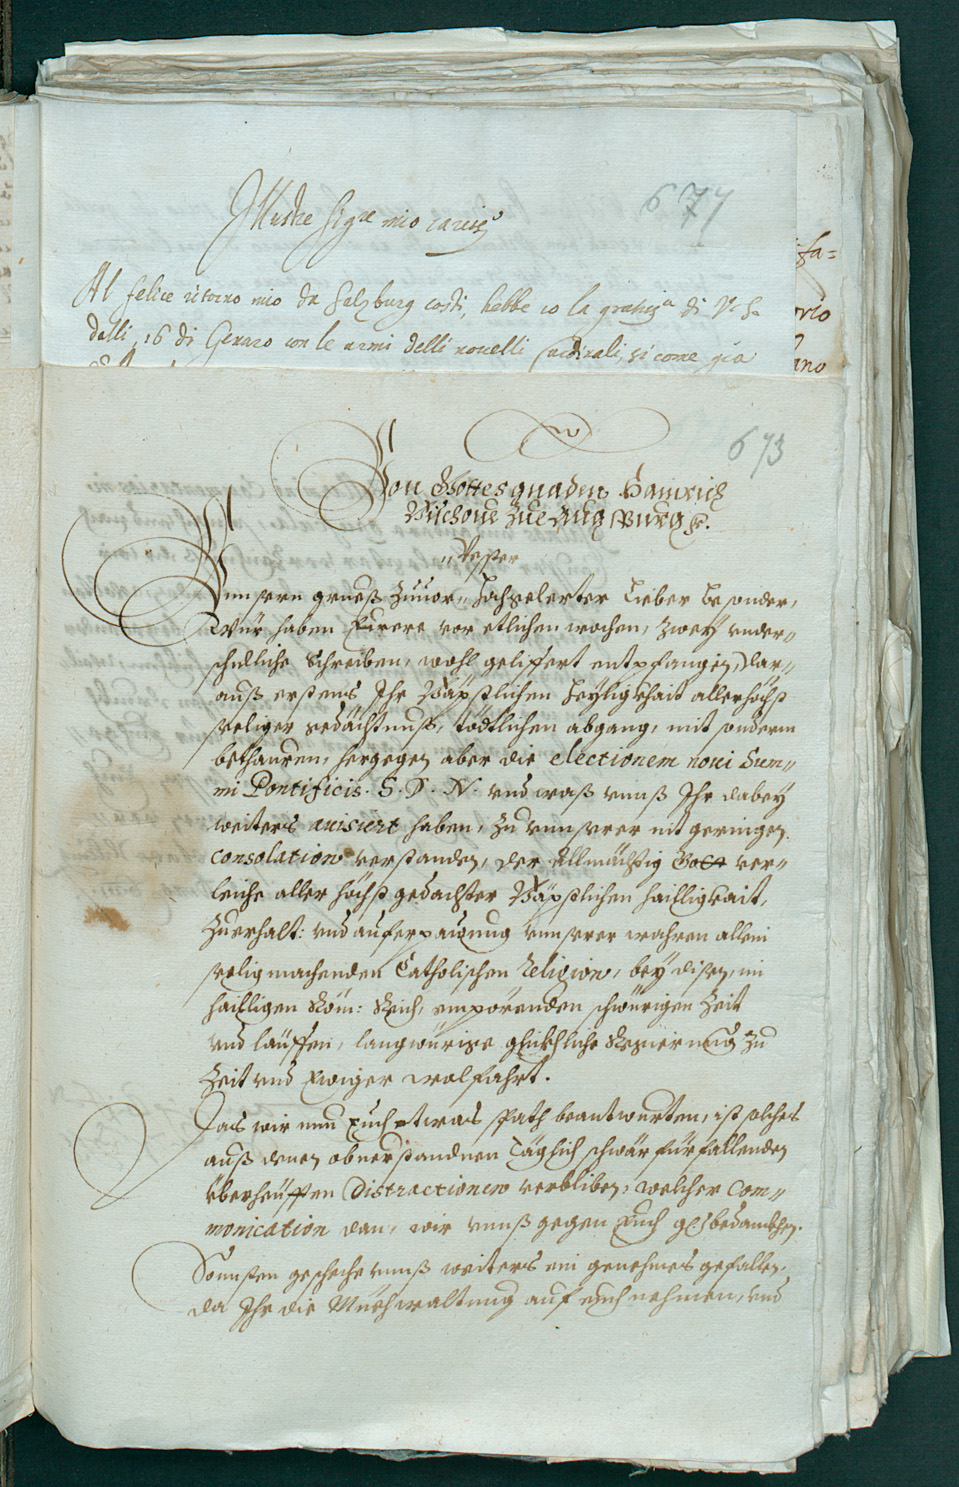 677
Illustre Sig.re mio cariss.o
Al felice ritorno mio da Salzburg costì, hebbe io la gratiss.a di V. S.
delli 16 di Genaro con le armi delli novelli Cardinali, si come già
673
Von Gottes gnaden Hainrich
Bischoue Zue Augspurg
Vester
Vnnsern grueß Zuuor, Hochgelerter Lieber besonder,
Wür haben Eurere vor etlichen wochen, Zwey vnder-
schidliche Schreiben, wohl gelifert entpfangen, Dar-
auß erstens Ihr Bäpstlichen Heyligkhait allerhöchst
seeliger gedächtnuß, tödtlichen abgang, mit sonderm
bethauren, hergegen aber die electionem noui Sum-
mi Pontificis. S. D. N. vnd waß vnnß Ihr dabey
weiters auisiert haben, Zu vnnserer nit geringen
consolation verstanden, der Allmächtig Gott ver-
leiche aller höchst gedachter Bäpstlichen hailligkait,
Zuerhalt: vnd aufferpauung vnnserer wahren allein
seeligmachenden Catholischen Religion, bey disen, im
hailligen Röm: Reich, empörenden schwürigen Zeit
vnd läuffen, langwürige glückhliche Regierung Zu
Zeit vnd Ewiger wolfahrt.
Das wir nun Euch etwas spath beantwurten, ist solches
auß denen obuerstandnen Täglich schwär fürfallenden
überheüfften Distractionen verbliben, welcher Com-
monication dan, wir vnnß gegen Euch gd: bedanckhen.
Sonnsten geschehe vnnß weiters ein genehmes gefallen,
da Ihr die Müehwaltung auf euch nehmen, vnd